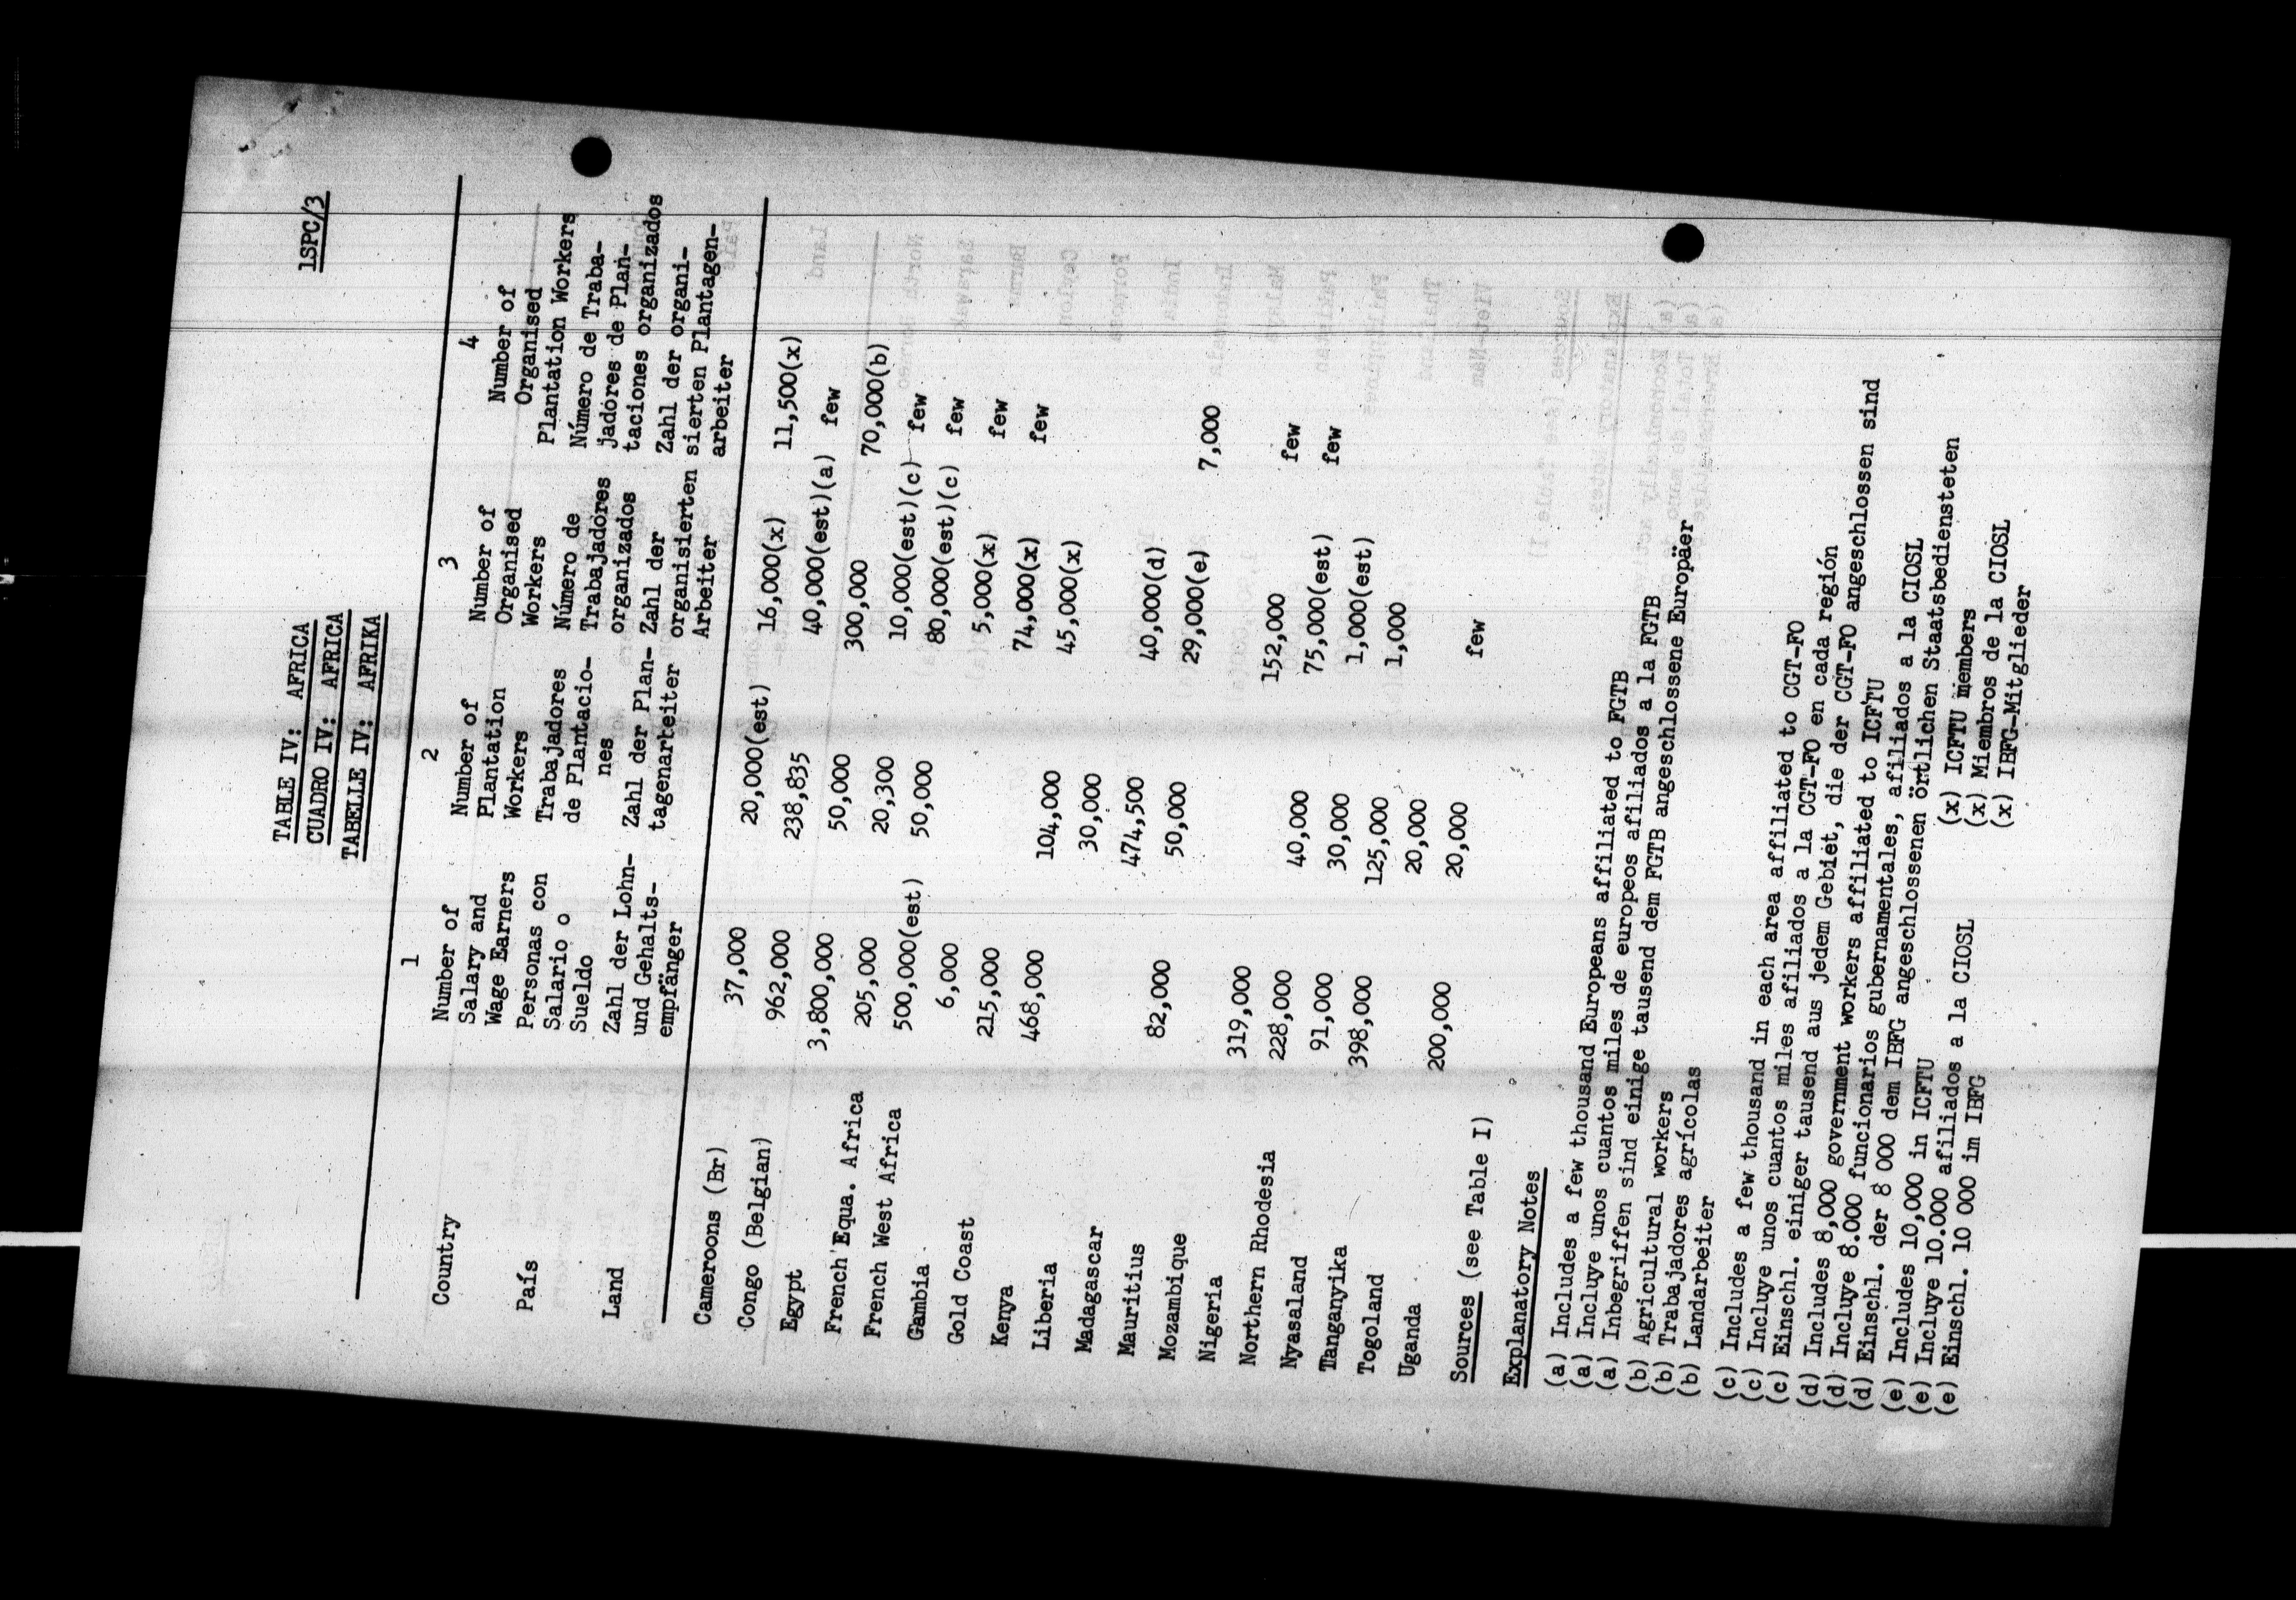 1SPC/3
TABLE IV: AFRICA
CUADRO IV: AFRICA
TABELLE IV: AFRIKA
1 2 3 4
Country Number of Number of Number of Number of
Salary and Plantation Organised Organised
Wage Earners Workers Workers Plantation Workers
País Personas con Trabajadores Número de Número de Traba-
Salario o de Plantacio- Trabajadores jadores de Plan-
Sueldo nes organizados taciones organizados
Land Zahl der Lohn- Zahl der Plan- Zahl der Zahl der organi-
und Gehalts- tagenarteiter organisierten sierten Plantagen-
empfänger Arbeiter arbeiter
Cameroons (Br) 37,000 20,000(est) 16,000(x) 11,500(x)
Congo (Belgian) 962,000 238,835 40,000(est)(a) few
Egypt 3,800,000 50,000 300,000 70,000(b)
French Equa. Africa 205,000 20,300 10,000(est)(c) few
French West Africa 500,000(est) 50,000 80,000(est)(c) few
Gambia 6,000 5,000(x) few
Gold Coast 215,000 74,000(x) few
Kenya 468,000 104,000 45,000(x)
Liberia 30,000
Madagascar 474,500 40,000(d)
Mauritius 82,000 50,000 29,000(e) 7,000
Mozambique
Nigeria 319,000 152,000 few
Northern Rhodesia 228,000 40,000 75,000(est) few
Nyasaland 91,000 30,000 1,000(est)
Tanganyika 398,000 125,000 1,000
Togoland 20,000
Uganda 200,000 20,000 few
Sources (see Table I)
Explanatory Notes
(a) Includes a few thousand Europeans affiliated to FGTB
(a) Incluye unos cuantos miles de europeos afiliados a la FGTB
(a) Inbegriffen sind einige tausend dem FGTB angeschlossene Europäer
(b) Agricultural workers
(b) Trabajadores agrícolas
(b) Landarbeiter
(c) Includes a few thousand in each area affiliated to CGT-FO
(c) Incluye unos cuantos miles afiliados a la CGT-FO en cada región
(c) Einschl. einiger tausend aus jedem Gebiet, die der CGT-FO angeschlossen sind
(d) Includes 8,000 government workers affiliated to ICFTU
(d) Incluye 8.000 funcionarios gubernamentales, afiliados a la CIOSL
(d) Einschl. der 8 000 dem IBFG angeschlossenen örtlichen Staatsbediensteten
(e) Includes 10,000 in ICFTU (x) ICFTU members
(e) Incluye 10.000 afiliados a la CIOSL (x) Miembros de la CIOSL
(e) Einschl. 10 000 im IBFG (x) IBFG-Mitglieder